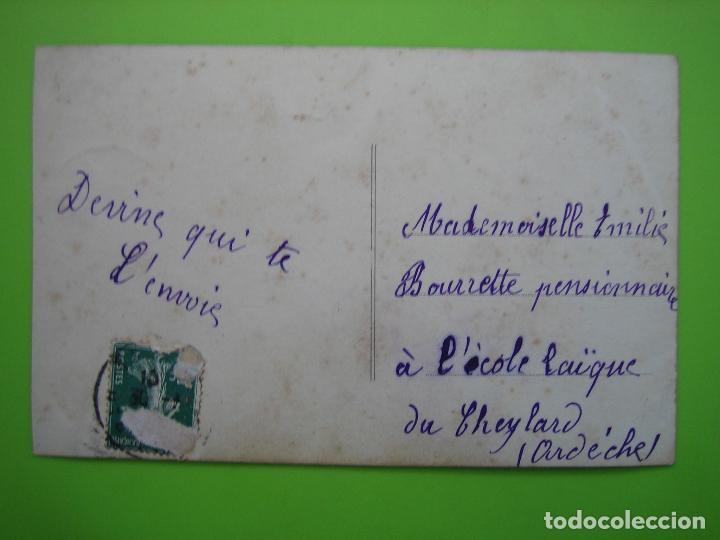 Devine qui te
l'envoie
Mademoiselle Emilie
Bourrette pensionnaire
à l'école laïque
du Cheylard
(Ardèche)
POSTES
todocoleccion.net